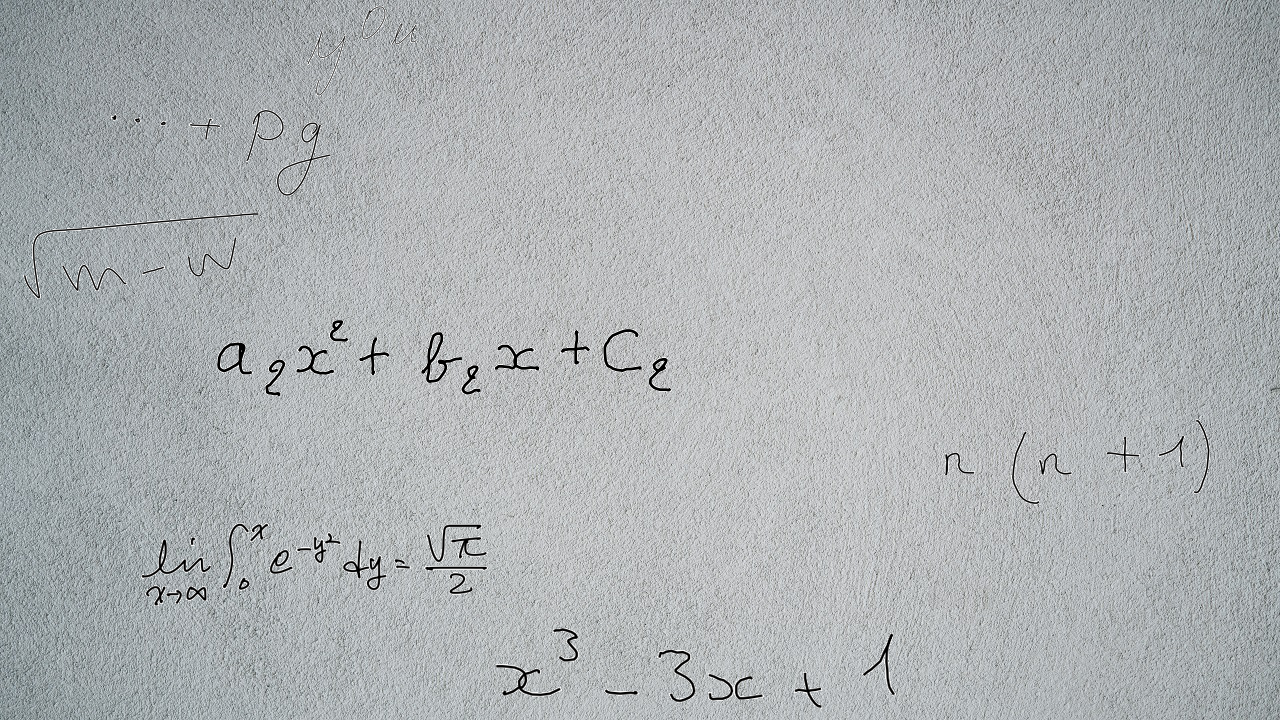 y^0 u
... + p g
√(m - w)
a_2 x^2 + b_2 x + C_2
n (n + 1)
lim_{x→∞} ∫_0^x e^{-y^2} dy = √π / 2
x^3 - 3x + 1